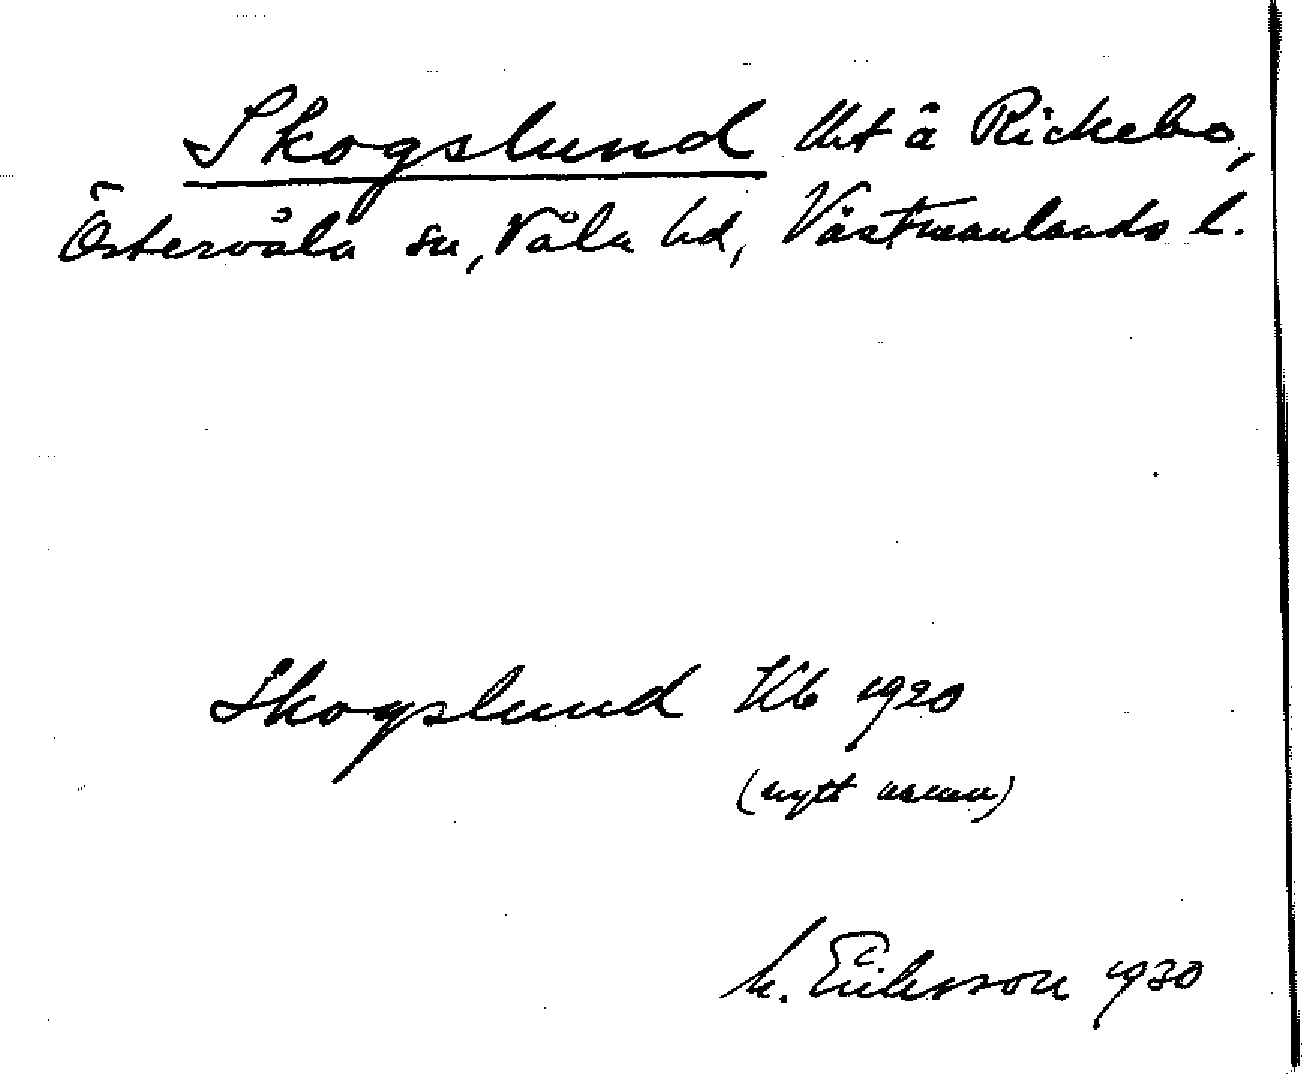 Skogslund lht å Rickebo,
Östervåla sn, Våla hd, Västmanlands l.
Skogslund Kb 1920
(nytt namn)
M. Eriksson 1930